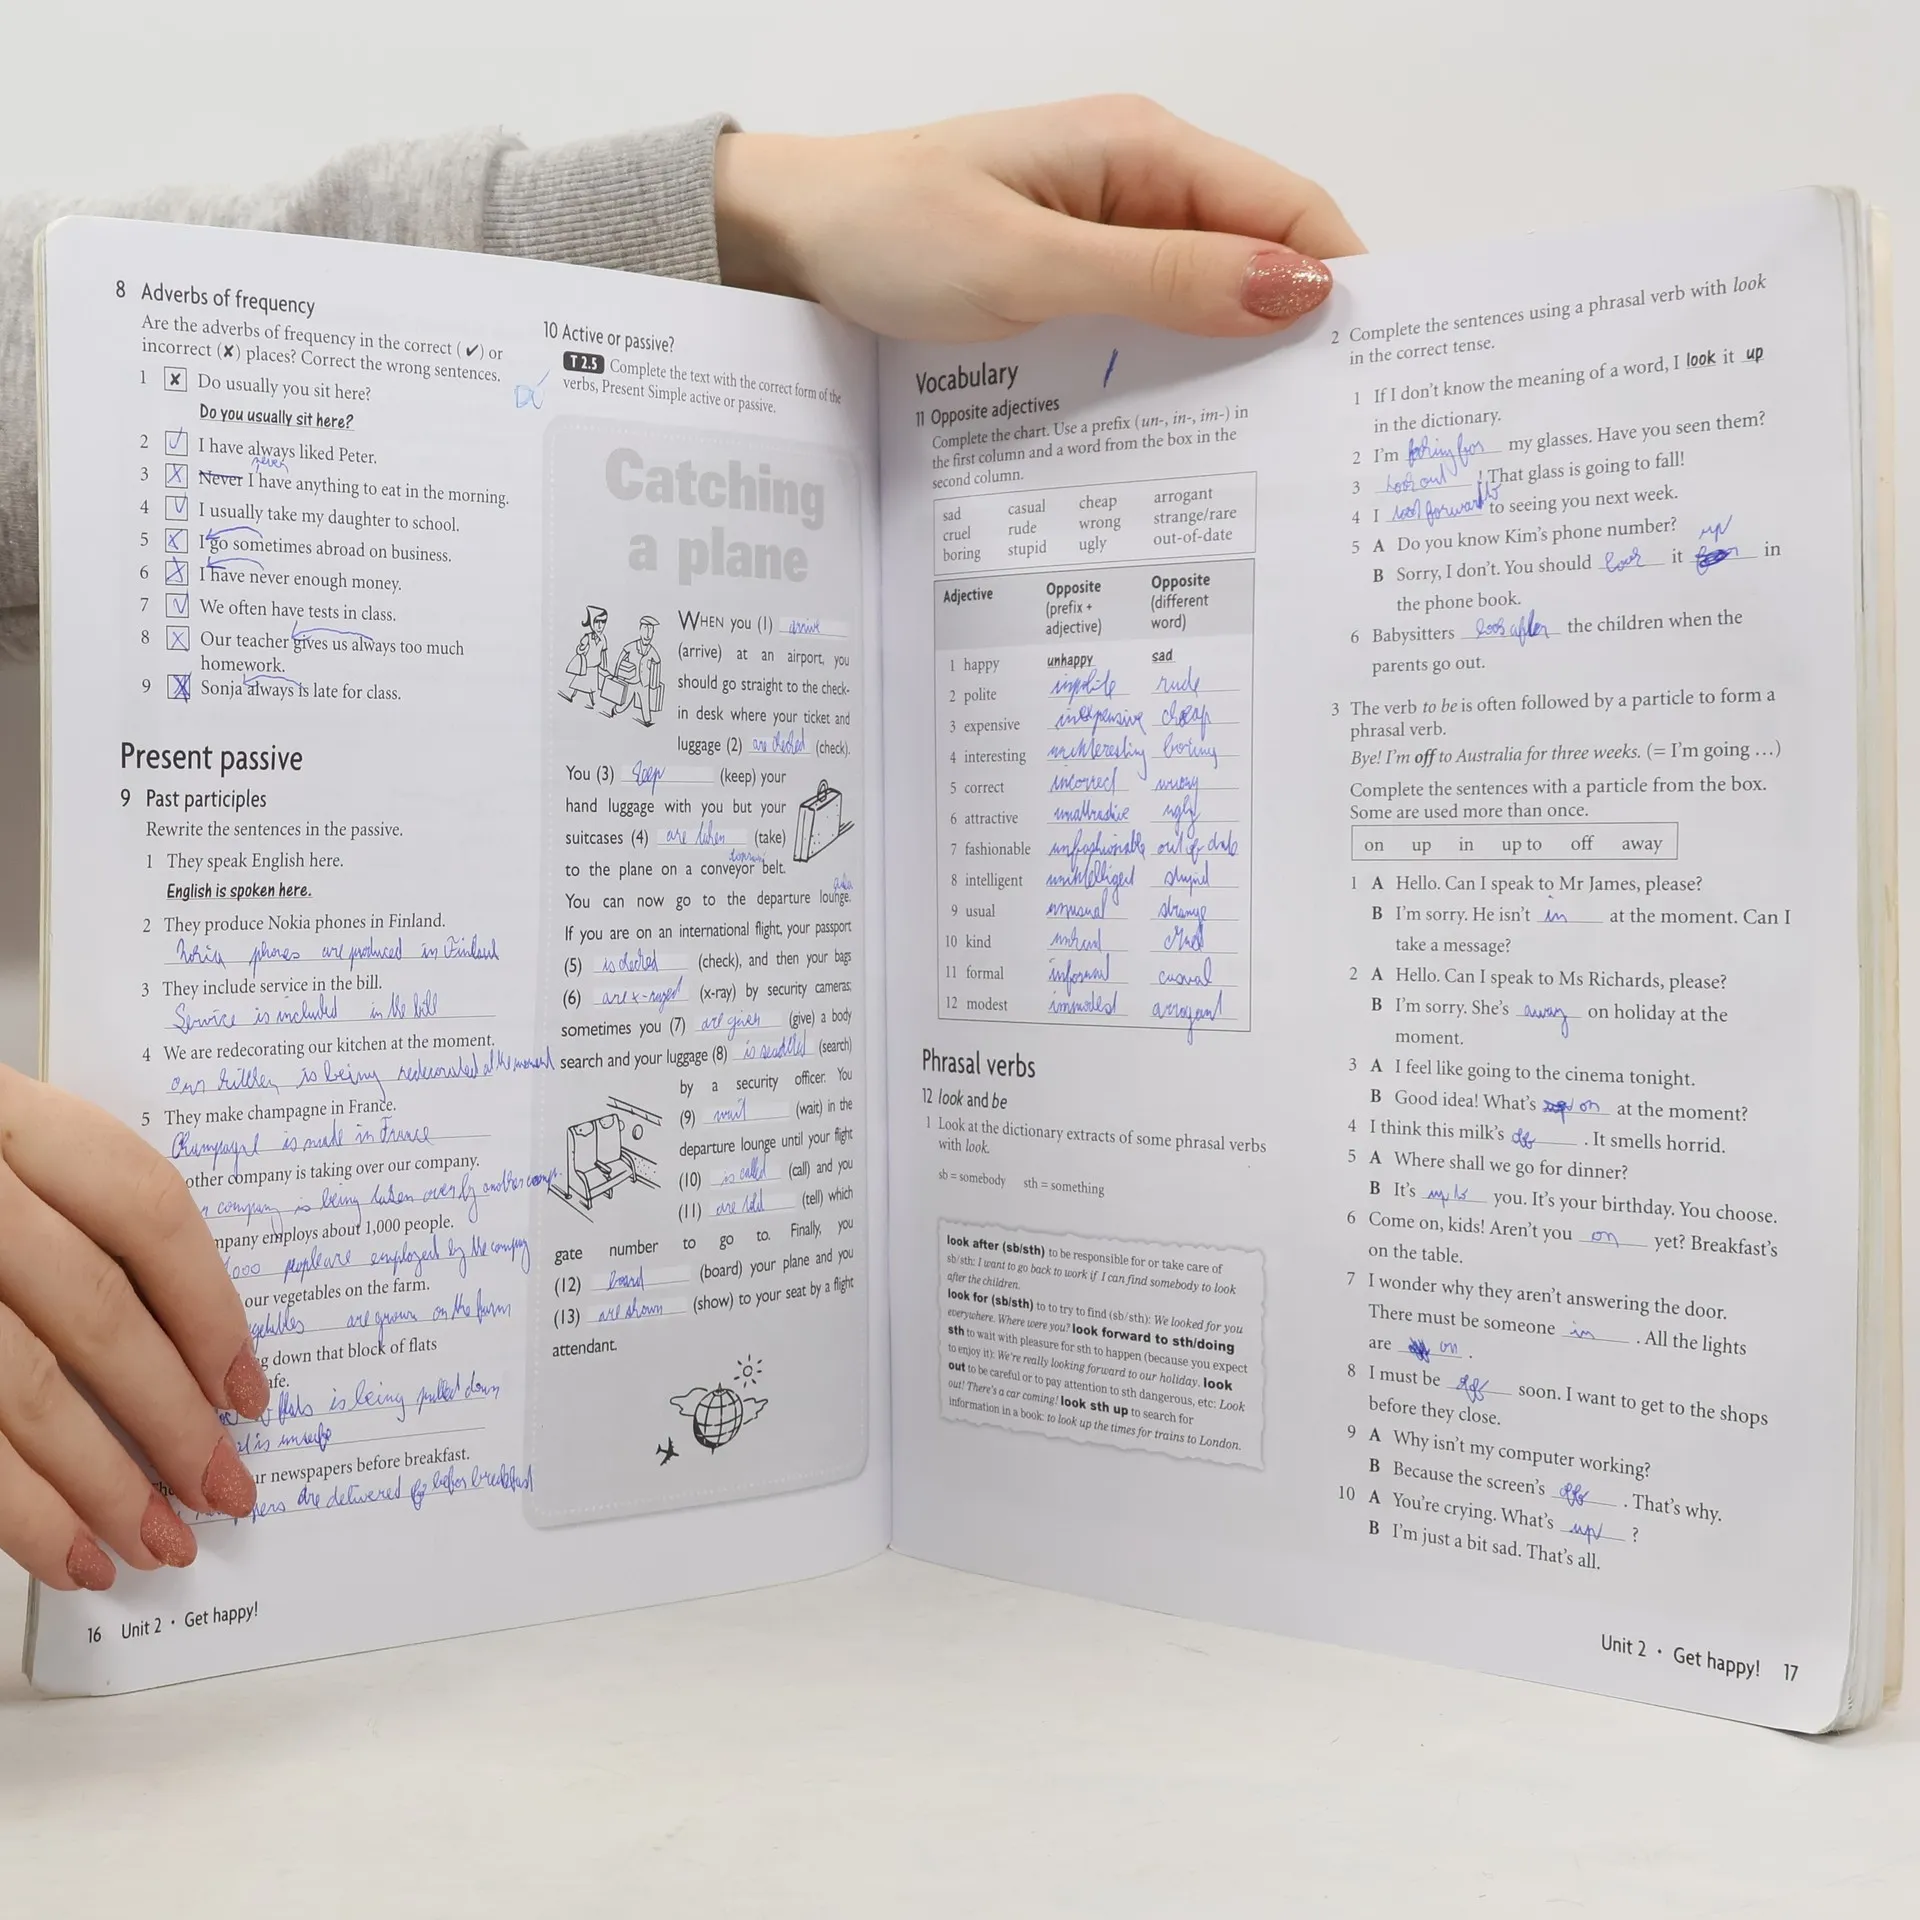 8 Adverbs of frequency
Are the adverbs of frequency in the correct (✔) or
incorrect (✘) places? Correct the wrong sentences.
1 ✘ Do usually you sit here?
Do you usually sit here?
2 ✓ I have always liked Peter.
never
3 X Never I have anything to eat in the morning.
4 ✓ I usually take my daughter to school.
5 X I go sometimes abroad on business.
6 X I have never enough money.
7 ✓ We often have tests in class.
8 X Our teacher gives us always too much
homework.
9 X Sonja always is late for class.
Present passive
9 Past participles
Rewrite the sentences in the passive.
1 They speak English here.
English is spoken here.
2 They produce Nokia phones in Finland.
Nokia phones are produced in Finland
3 They include service in the bill.
Service is included in the bill
4 We are redecorating our kitchen at the moment.
our kitchen is being redecorated at the moment
5 They make champagne in France.
is made in France
other company is taking over our company.
company is being taken over by another
mpany employs about 1,000 people.
000 people are employed by the company
our vegetables on the farm.
getables are grown on the farm
g down that block of flats
afe.
flats is being pulled down
is unsafe
ur newspapers before breakfast.
pers are delivered before breakfast
16 Unit 2 · Get happy!
10 Active or passive?
T 2.5 Complete the text with the correct form of the
verbs, Present Simple active or passive.
Catching
a plane
WHEN you (1) arrive
(arrive) at an airport, you
should go straight to the check-
in desk where your ticket and
luggage (2) are checked (check).
You (3) keep (keep) your
hand luggage with you but your
suitcases (4) are taken (take)
to the plane on a conveyor belt.
You can now go to the departure lounge.
If you are on an international flight, your passport
(5) is checked (check), and then your bags
(6) are x-rayed (x-ray) by security cameras;
sometimes you (7) are given (give) a body
search and your luggage (8) is (search)
by a security officer. You
(9) wait (wait) in the
departure lounge until your flight
(10) is called (call) and you
(11) are told (tell) which
gate number to go to. Finally, you
(12) board (board) your plane and you
(13) are shown (show) to your seat by a flight
attendant.
Vocabulary
11 Opposite adjectives
Complete the chart. Use a prefix (un-, in-, im-) in
the first column and a word from the box in the
second column.
sad casual cheap arrogant
cruel rude wrong strange/rare
boring stupid ugly out-of-date
Adjective Opposite (prefix + adjective) Opposite (different word)
1 happy unhappy sad
2 polite impolite rude
3 expensive inexpensive cheap
4 interesting uninteresting boring
5 correct incorrect wrong
6 attractive unattractive ugly
7 fashionable unfashionable out of date
8 intelligent unintelligent stupid
9 usual unusual strange
10 kind unkind cruel
11 formal informal casual
12 modest immodest arrogant
Phrasal verbs
12 look and be
1 Look at the dictionary extracts of some phrasal verbs
with look.
sb = somebody sth = something
look after (sb/sth) to be responsible for or take care of
sb/sth: I want to go back to work if I can find somebody to look
after the children.
look for (sb/sth) to to try to find (sb/sth): We looked for you
everywhere. Where were you? look forward to sth/doing
sth to wait with pleasure for sth to happen (because you expect
to enjoy it): We're really looking forward to our holiday. look
out to be careful or to pay attention to sth dangerous, etc: Look
out! There's a car coming! look sth up to search for
information in a book: to look up the times for trains to London.
2 Complete the sentences using a phrasal verb with look
in the correct tense.
1 If I don't know the meaning of a word, I look it up
in the dictionary.
2 I'm looking for my glasses. Have you seen them?
3 Look out ! That glass is going to fall!
4 I look forward to seeing you next week.
5 A Do you know Kim's phone number?
up
B Sorry, I don't. You should look it in
the phone book.
6 Babysitters look after the children when the
parents go out.
3 The verb to be is often followed by a particle to form a
phrasal verb.
Bye! I'm off to Australia for three weeks. (= I'm going …)
Complete the sentences with a particle from the box.
Some are used more than once.
on up in up to off away
1 A Hello. Can I speak to Mr James, please?
B I'm sorry. He isn't in at the moment. Can I
take a message?
2 A Hello. Can I speak to Ms Richards, please?
B I'm sorry. She's away on holiday at the
moment.
3 A I feel like going to the cinema tonight.
B Good idea! What's on at the moment?
4 I think this milk's off . It smells horrid.
5 A Where shall we go for dinner?
B It's up to you. It's your birthday. You choose.
6 Come on, kids! Aren't you on yet? Breakfast's
on the table.
7 I wonder why they aren't answering the door.
There must be someone in . All the lights
are on .
8 I must be off soon. I want to get to the shops
before they close.
9 A Why isn't my computer working?
B Because the screen's off . That's why.
10 A You're crying. What's up ?
B I'm just a bit sad. That's all.
Unit 2 · Get happy! 17